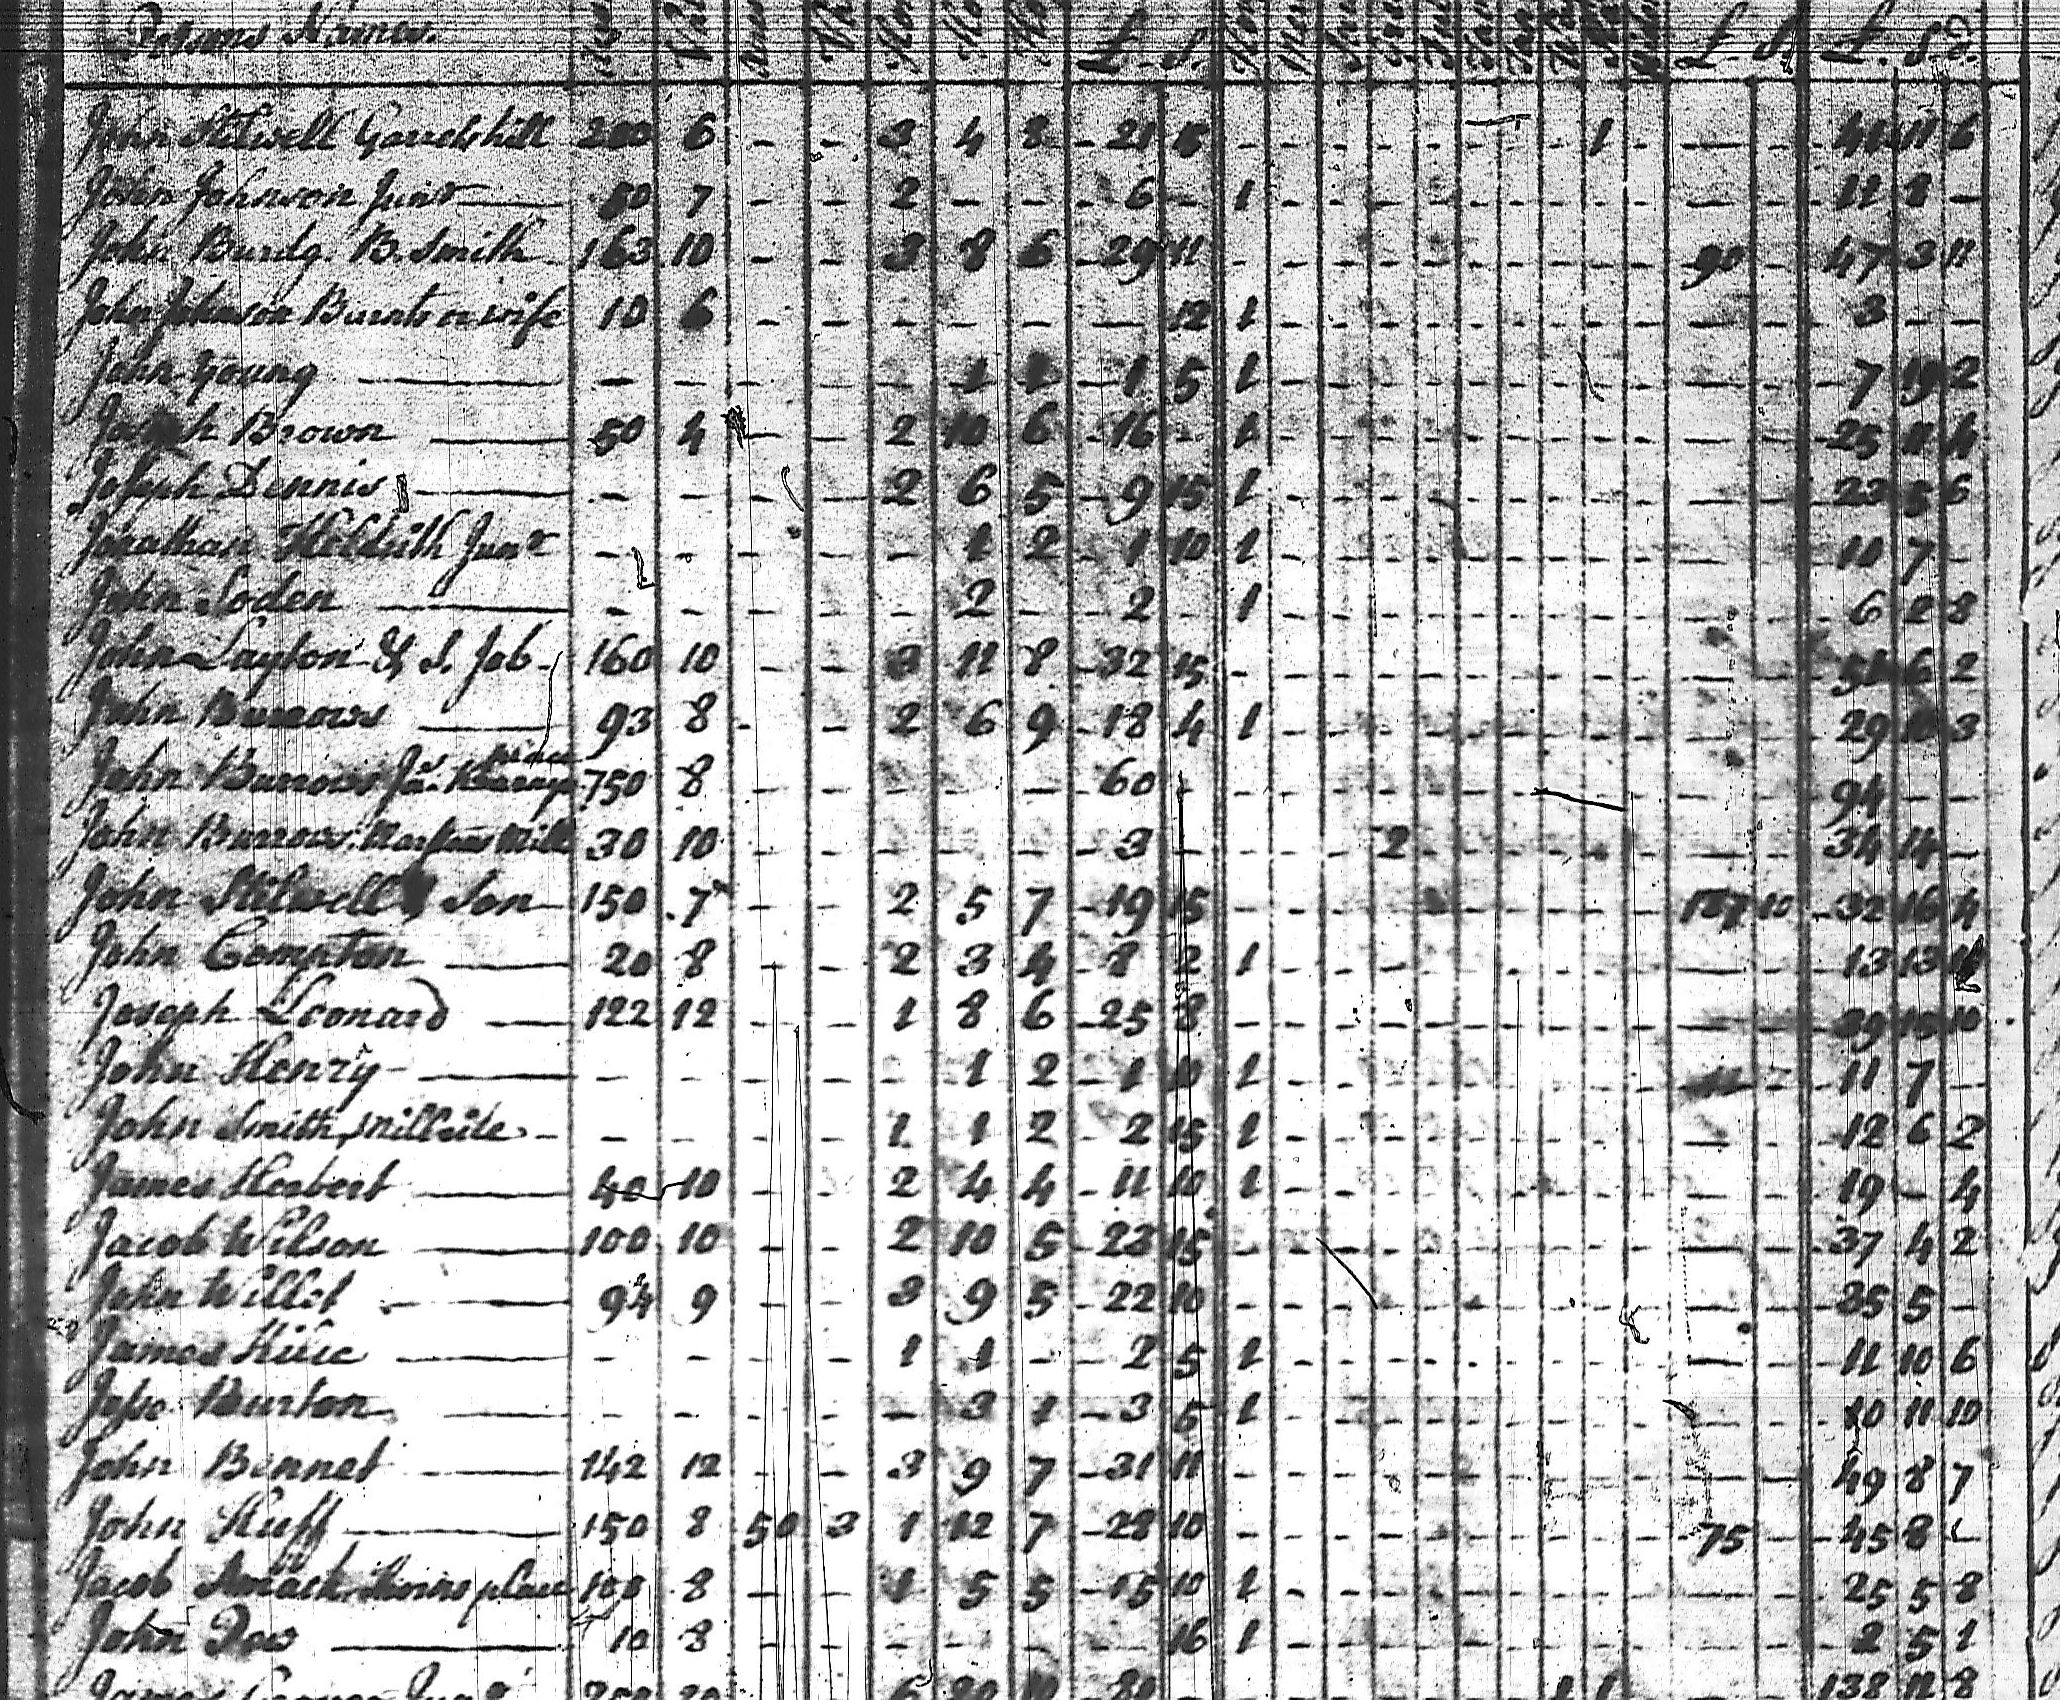 Persons Names. £ S. £ S. £. S. d.
John Stilwell 200 6 - - 3 4 8 21 - - - - - - - - 1 - - 41 11 6
John Johnson Junr 80 7 - - 2 - - 6 - 1 - - - - - - - - - - 11 8 -
John Burdg. B. Smith 163 10 - - 3 8 6 29 11 - - - - - - - - - - 90 47 3 11
John Johnson Burnts or wife 10 6 - - - - - - 12 1 - - - - - - - - - - 3 - -
John Young - - - - 1 1 1 5 1 - - - - - - - - - - 7 19 2
Brown 50 4 - - 2 10 6 16 - 1 - - - - - - - - - - 25 11 4
Joseph Dennis - - - - 2 6 5 9 15 1 - - - - - - - - - - 23 5 6
Jonathan Hildrith Junr - - - - - 1 2 1 10 1 - - - - - - - - - - 11 7 -
John Soden - - - - - 2 - 2 - 1 - - - - - - - - - - 6 2 8
John Layton & S. Job 160 10 - - 3 11 8 32 15 - - - - - - - - - - - 51 6 2
John Burrows 93 8 - - 2 6 9 18 4 1 - - - - - - - - - - 29 3
John Burrows Jr. 750 8 - - - - - 60 - - - - - - - - - - - - 94 - -
John Burrows Mill 30 10 - - - - - 3 - - - - 2 - - - - - - - 34 14 -
John Stilwell & Son 150 7 - - 2 5 7 19 15 - - - - - - - - - - 10 32 16 4
John Compton 20 8 - - 2 3 4 8 2 1 - - - - - - - - - - 13 13
Joseph Leonard 122 12 - - 1 8 6 25 8 - - - - - - - - - - - 39 10
John Henry - - - - - 1 2 1 10 1 - - - - - - - - - 11 7 -
John Smith - - - - 1 1 2 2 15 1 - - - - - - - - - - 12 6 2
James Herbert 40 10 - - 2 4 4 11 10 1 - - - - - - - - - - 19 - 4
Jacob Wilson 100 10 - - 2 10 5 23 15 - - - - - - - - - - - 37 4 2
John Willet 94 9 - - 3 9 5 22 10 - - - - - - - - - - - 35 5 -
James - - - - 1 1 - 2 5 1 - - - - - - - - - - 11 10 6
Jesse Burton - - - - - 3 1 3 5 1 - - - - - - - - - - 10 11 10
John Bennet 142 12 - - 3 9 7 31 11 - - - - - - - - - - - 49 8 7
John Huff 150 8 50 3 1 12 7 28 10 - - - - - - - - - - 75 - 45 8 -
Jacob place 100 8 - - 1 5 5 15 10 1 - - - - - - - - - - 25 5 8
John Dow 10 8 - - - - - - 16 1 - - - - - - - - - - 2 5 1
James 1 1 138 11 8